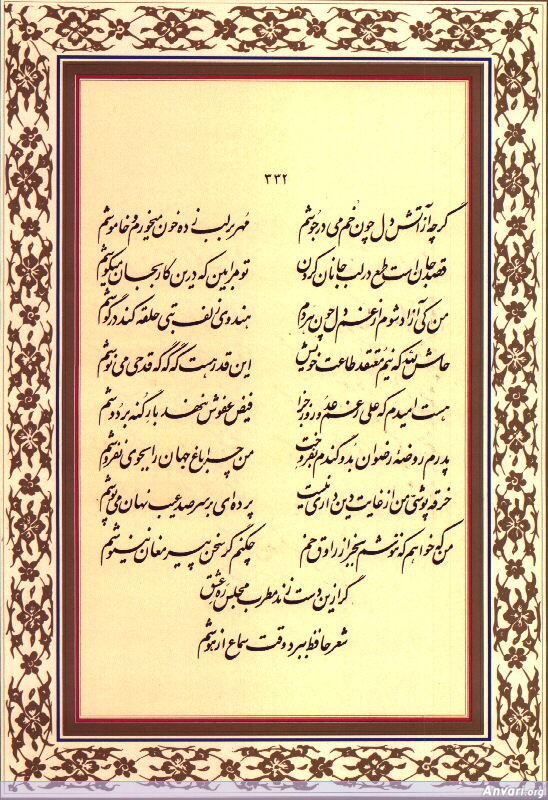 ۳۳۲
گرچه از آتش دل چون خُم می در جوشم مُهر بر لب زده خون میخورم و خاموشم
قصد جان است طمع در لب جانان کردن تو مرا بین که درین کار بجان میکوشم
من کی آزاد شوم از غم دل چون هر دم هندوی زلف بتی حلقه کند در گوشم
حاش لله که نیم معتقد طاعت خویش این قدر هست که گه گه قدحی می نوشم
هست امیدم که علی رغم عدو روز جزا فیض عفوش ننهد بار گنه بر دوشم
پدرم روضهٔ رضوان بدو گندم بفروخت من چرا باغ جهان را بجوی نفروشم
خرقه پوشی من از غایت دین داری نیست پرده ای بر سر صد عیب نهان می پوشم
من که خواهم که ننوشم بجز از راوق خم چکنم گر سخن پیر مغان ننیوشم
گر ازین دست زند مطرب مجلس ره عشق
شعر حافظ ببرد وقت سماع از هوشم
Anvari.org